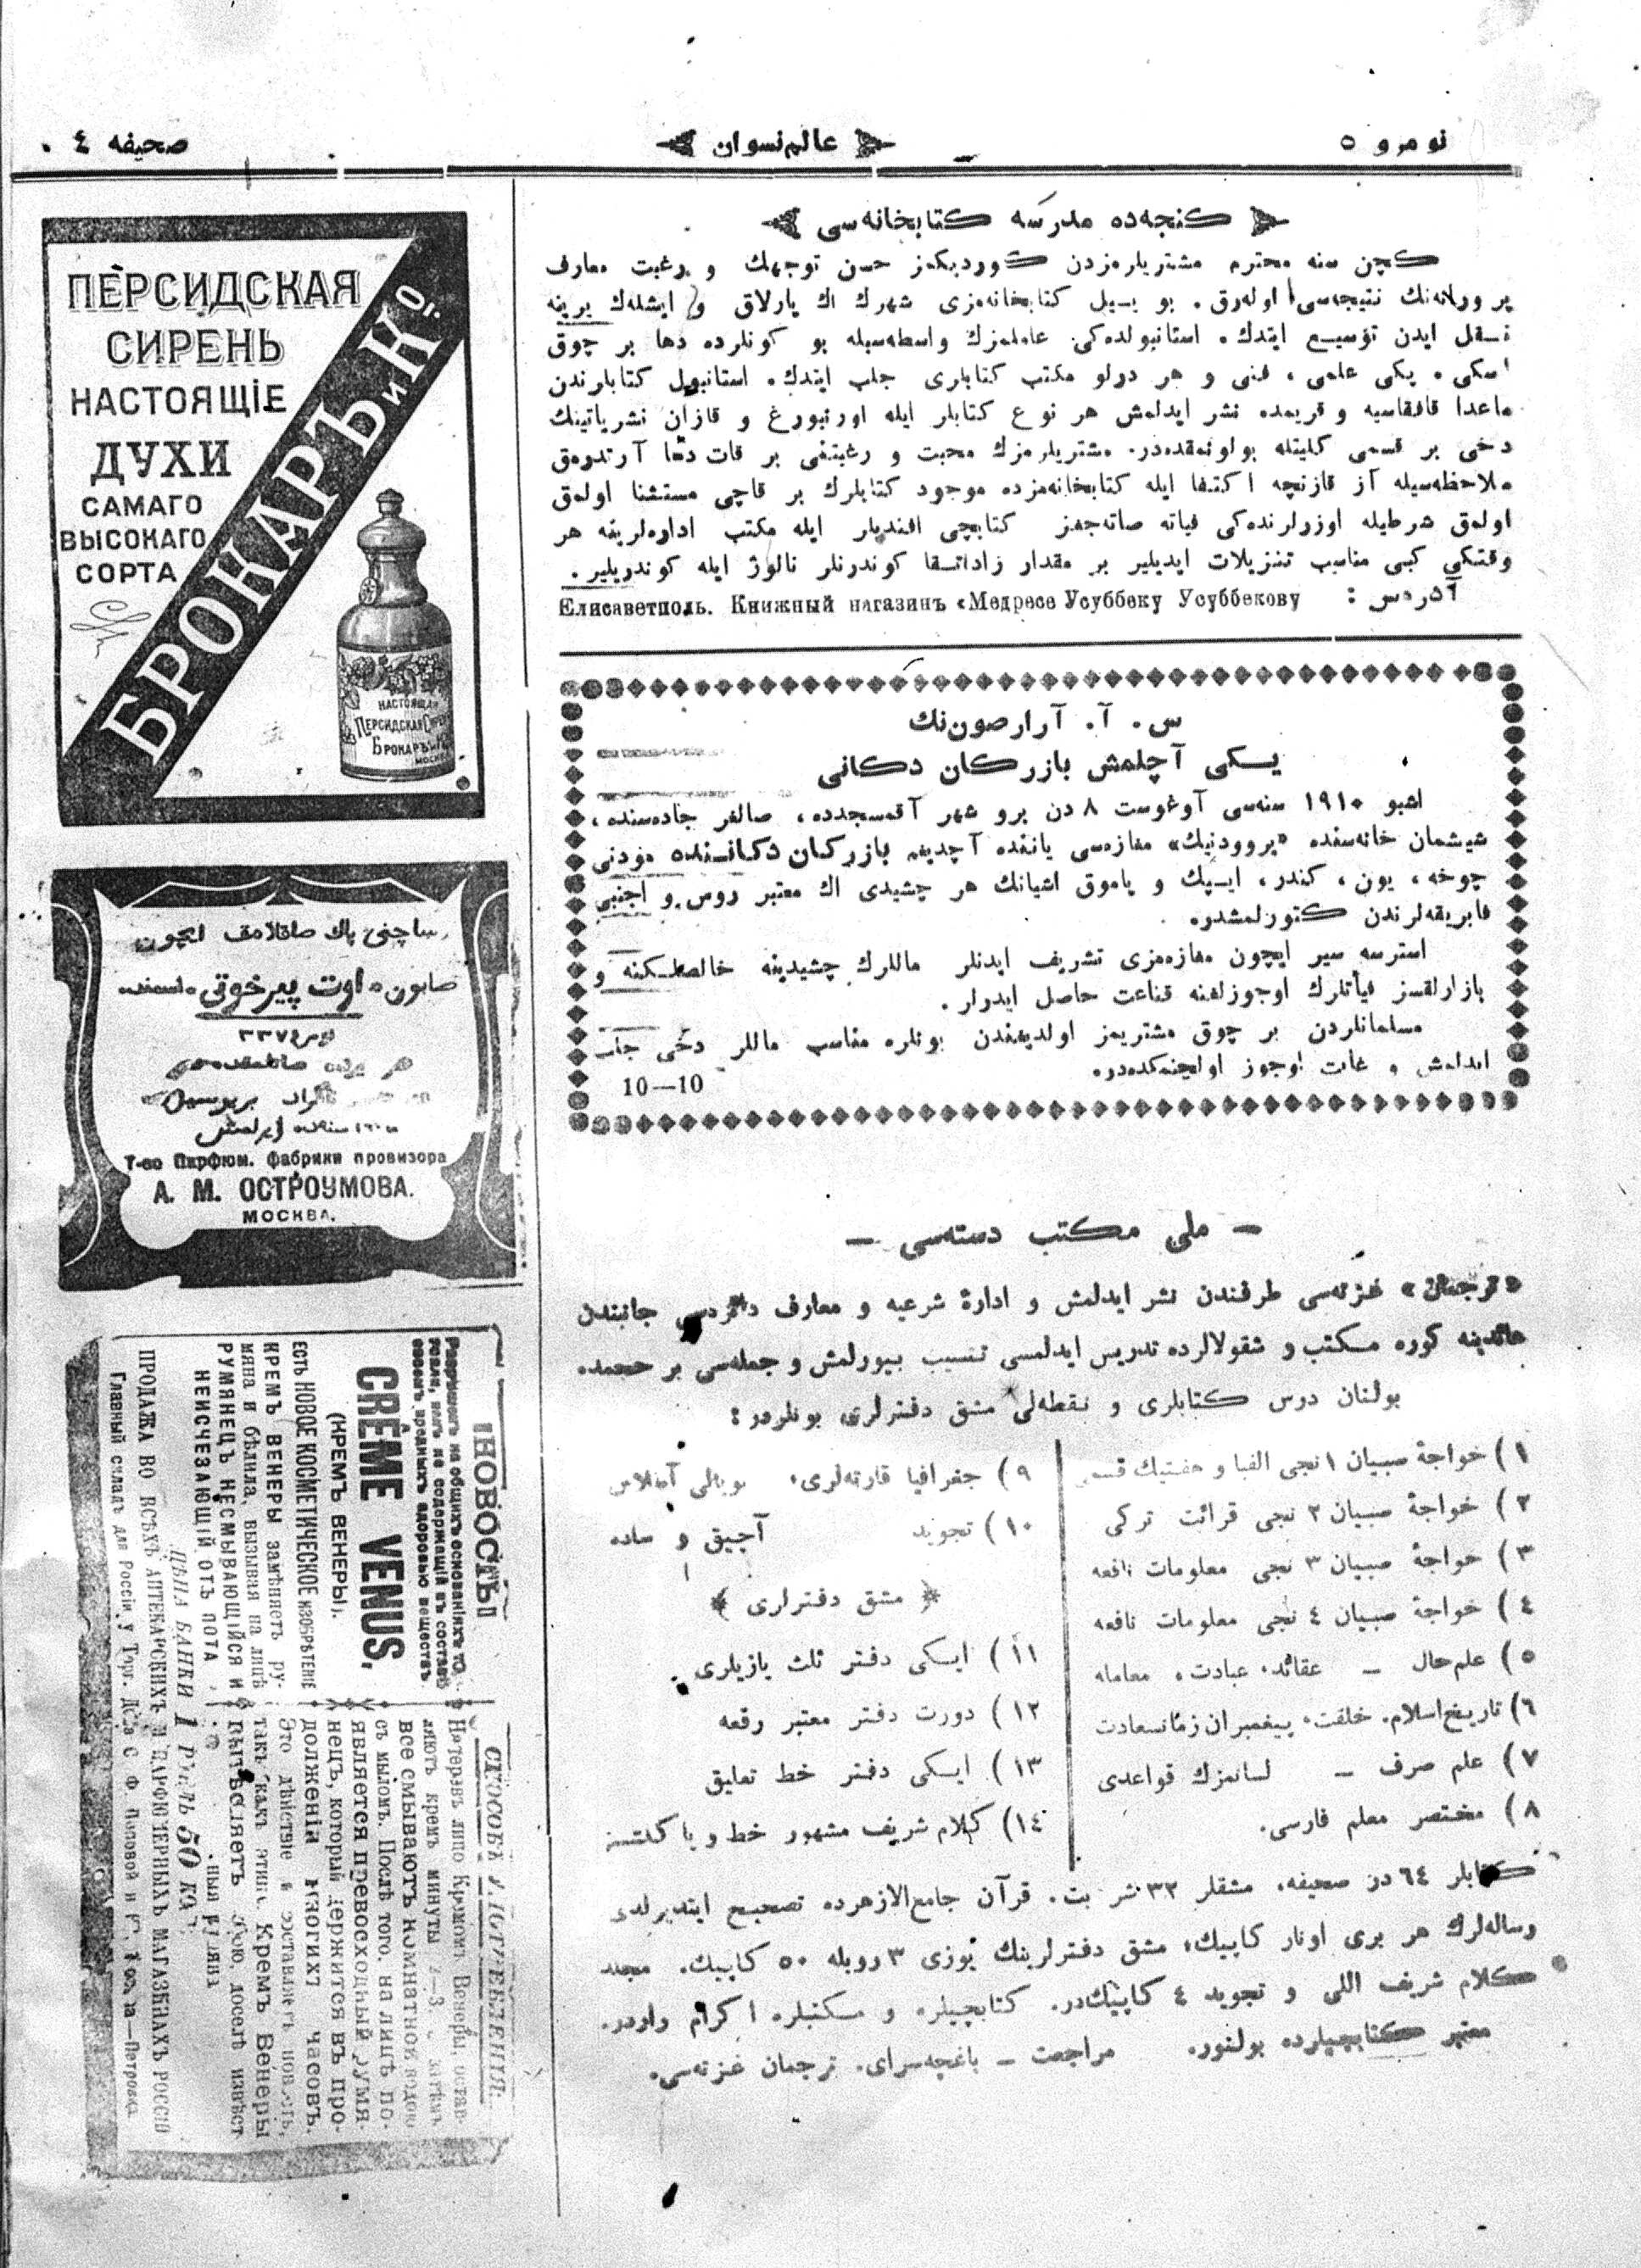 نومرو ٥
عالم نسوان
صحیفه ٤
كنجه‌ده مدرسه كتابخانه‌سی
كچن سنه محترم مشتریلرمزدن كوردیكمز حسن توجهك و رغبت معارف
پرورانه‌نك نتیجه‌سی اوله‌رق. بو ییل كتابخانه‌مزی شهرك اك پارلاق و ایشلك یرینه
نقل ایدن توسیع ایتدك. استانبولده‌كی عاملمزك واسطه‌سیله بو كونلرده دها بر چوق
اسكی، یكی علمی، فنی و هر درلو مكتب كتابلری جلب ایتدك. استانبول كتابلرندن
ماعدا قافقاسیه و قریمده نشر ایدلمش هر نوع كتابلر ایله اورنبورغ و قازان نشریاتینك
دخی بر قسمی كلیتله بولونمقده‌در. مشتریلرمزك محبت و رغبتنی بر قات دها آرتدرمق
ملاحظه‌سیله آز قازنچه اكتفا ایله كتابخانه‌مزده موجود كتابلرك بر قاچی مستثنا اولمق
اولمق شرطیله اوزرلرنده‌كی فیاته صاته‌جغز كتابچی افندیلر ایله مكتب اداره‌لرینه هر
وقتكی كبی مناسب تنزیلات ایدیلیر بر مقدار زاداتقا كوندرنلر نالوژ ایله كوندریلیر.
آدرس :
Елисаветполь. Книжный магазинъ «Медресе Усуббеку Усуббекову
س. آ. آرارصون‌نك
یسكی آچلمش بازركان دكانی
اشبو ١٩١٠ سنه‌سی آوغوست ٨ دن برو شهر آقمسجدده، صالغر جاده‌سنده،
شیشمان خانه‌سنده «پروودنیك» مغازه‌سی یاننده آچدیغم بازركان دكاننده مودنی
چوخه، یون، كندر، ایپك و پاموق اشیانك هر چشیدی اك معتبر روس و اجنبی
فابریقه‌لرندن كتورلمشدر.
استرسه سیر ایچون مغازه‌مزی تشریف ایدنلر ماللرك چشیدینه خالصلكنه و
بازارلقسز فیأتلرك اوجوزلغنه قناعت حاصل ایدرلر.
مسلمانلردن بر چوق مشتریمز اولدیغندن بونلره مناسب ماللر دخی جلب
ایدلمش و غایت اوجوز اولچنمكده‌در.
10—10
— ملی مكتب دسته‌سی —
«ترجمان» غزته‌سی طرفندن نشر ایدلمش و ادارۀ شرعیه و معارف دائره‌سی جانبندن
عائدینه كوره مكتب و شقولالرده تدریس ایدلمسی تنسیب بیورلمش و جمله‌سی بر حجمده
بولنان درس كتابلری و نقطه‌لی مشق دفترلری بونلردر:
١) خواجۀ صبیان ١ نجی الفبا و هفتیك قسمی
٢) خواجۀ صبیان ٢ نجی قرائت تركی
٣) خواجۀ صبیان ٣ نجی معلومات نافعه
٤) خواجۀ صبیان ٤ نجی معلومات نافعه
٥) علم حال — عقائد، عبادت، معامله
٦) تاریخ اسلام. خلقت، پیغمبران زمانسعادت
٧) علم صرف — لسانمزك قواعدی
٨) مختصر معلم فارسی.
٩) جغرافیا قارته‌لری، بویالی آطلاس
١٠) تجوید آچیق و ساده
مشق دفترلری
١١) ایكی دفتر ثلث یازیلری.
١٢) دورت دفتر معتبر رقعه
١٣) ایكی دفتر خط تعلیق
١٤) كلام شریف مشهور خط و
كتابلر ٦٤ در صحیفه، مشقلر ٣٢ شر بت. قرآن جامع‌الازهرده تصحیح ایتدیرلدی
رساله‌لرك هر بری اونار كاپیك؛ مشق دفترلرینك یوزی ٣ روبله ٥٠ كاپیك. مجلد
كلام شریف اللی و تجوید ٤ كاپیك‌در. كتابچیلره و مكتبلره اكرام واردر.
معتبر كتابچیلرده بولنور. مراجعت — باغچه‌سرای. ترجمان غزته‌سی.
ПЕРСИДСКАЯ
СИРЕНЬ
НАСТОЯЩІЕ
ДУХИ
САМАГО
ВЫСОКАГО
СОРТА
БРОКАРЪ и Кº
НАСТОЯЩАЯ
ПЕРСИДСКАЯ СИРЕНЬ
БРОКАРЪ и Кº
МОСКВА
ساچنی پاك صاقلامق ایچون
صابون «اوت پیرخوتی» اسمنده
نومرو ٣٣٧
هر یرده صاتلمقده‌در
Т-во Парфюм. фабрики провизора
А. М. ОСТРОУМОВА.
МОСКВА.
НОВОСТЬ!
Разрѣшенъ на общихъ основаніяхъ то-
рговли, какъ не содержащій въ составѣ
своемъ вредныхъ здоровью веществъ
CRÊME VENUS,
(КРЕМЪ ВЕНЕРЫ).
ЕСТЬ НОВОЕ КОСМЕТИЧЕСКОЕ ИЗОБРѢТЕНІЕ
КРЕМЪ ВЕНЕРЫ замѣняетъ ру-
мяна и бѣлила, вызывая на лицѣ
РУМЯНЕЦЪ НЕСМЫВАЮЩІЙСЯ И
НЕИСЧЕЗАЮЩІЙ ОТЪ ПОТА
СПОСОБЪ УПОТРЕБЛЕНІЯ:
Натеревъ лицо Кремомъ Венеры, остав-
ляютъ кремъ минуты 2—3, затѣмъ
все смываютъ комнатной водою
съ мыломъ. Послѣ того, на лицѣ по-
является превосходный румя-
нецъ, который держится въ про-
долженіи многихъ часовъ.
Это дѣйствіе и составляетъ новость,
такъ какъ этимъ Кремъ Венеры
ЦѢНА БАНКИ 1 РУБЛЬ 50 коп.
ПРОДАЖА ВО ВСѢХЪ АПТЕКАРСКИХЪ И ПАРФЮМЕРНЫХЪ МАГАЗИНАХЪ РОССІИ
Главный складъ для Россіи у Торг. Д-ма С. Ф.